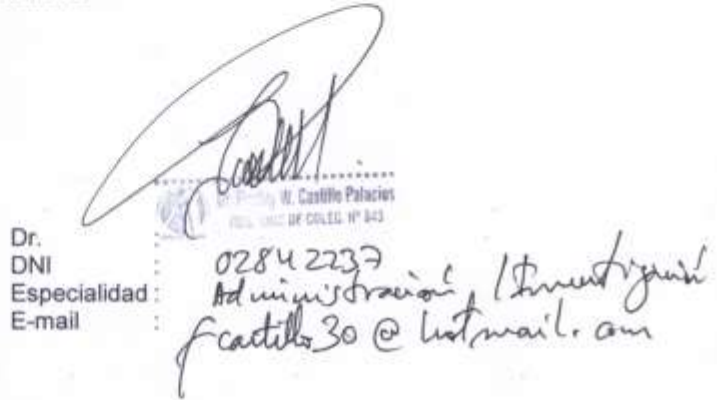 W. Castillo Palacios
DE COLEG. Nº 843
Dr. :
DNI : 02842237
Especialidad : Administración, Investigación
E-mail : fcastillo30@hotmail.com